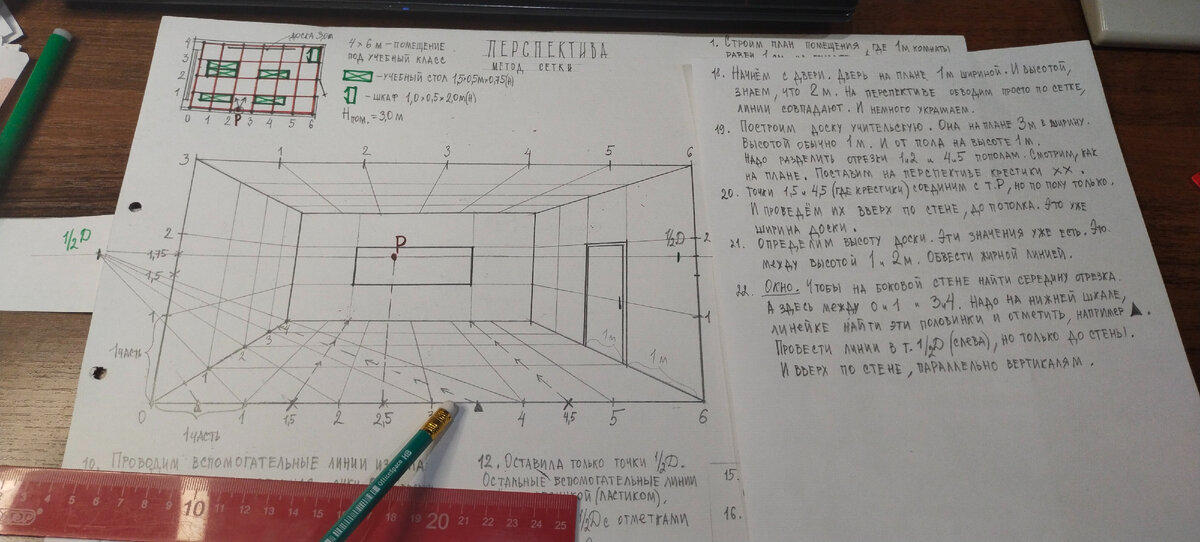 доска 3,0м
4 × 6 м – помещение
под учебный класс
– учебный стол 1,5×0,5м×0,75(h)
– шкаф 1,0×0,5×2,0м(h)
Hпом. = 3,0 м
Перспектива
метод сетки
4
3
2
1
0 1 2 P 3 4 5 6
3 1 2 3 4 5 6
1/2 D
2
1,75
1,5
1
1 часть
P
1/2 D
2
1
3
2
1
1м
1м
0 1 1,5 2 2,5 3 4 4,5 5 6
1 часть
10. Проводим вспомогательные линии
12. Оставила только точки 1/2 D.
Остальные вспомогательные линии
(ластиком).
1/2 D с отметками
15.
16.
1. Строим план помещения, где 1м комнаты
18. Начнём с двери. Дверь на плане 1м шириной. И высотой,
знаем, что 2 м. На перспективе обводим просто по сетке,
линии совпадают. И немного украшаем.
19. Построим доску учительскую. Она на плане 3м в ширину.
Высотой обычно 1м. И от пола на высоте 1м.
Надо разделить отрезки 1и2 и 4и5 пополам. Смотрим, как
на плане. Поставим на перспективе крестики ××.
20. Точки 1,5 и 4,5 (где крестики) соединим с т.P, но по полу только.
И проведём их вверх по стене, до потолка. Это уже
ширина доски.
21. Определим высоту доски. Эти значения уже есть. Это
между высотой 1 и 2м. Обвести жирной линией.
22. Окно. Чтобы на боковой стене найти середину отрезка.
А здесь между 0 и 1 и 3и4. Надо на нижней шкале,
линейке найти эти половинки и отметить, например ▲.
Провести линии в т. 1/2 D (слева), но только до стены.
И вверх по стене, параллельно вертикалям.
OfficeSpace HB
3 4 5 6 7 8 9 10 11 12 13 14 15 16 17 18 19 20 21 22 23 24 25